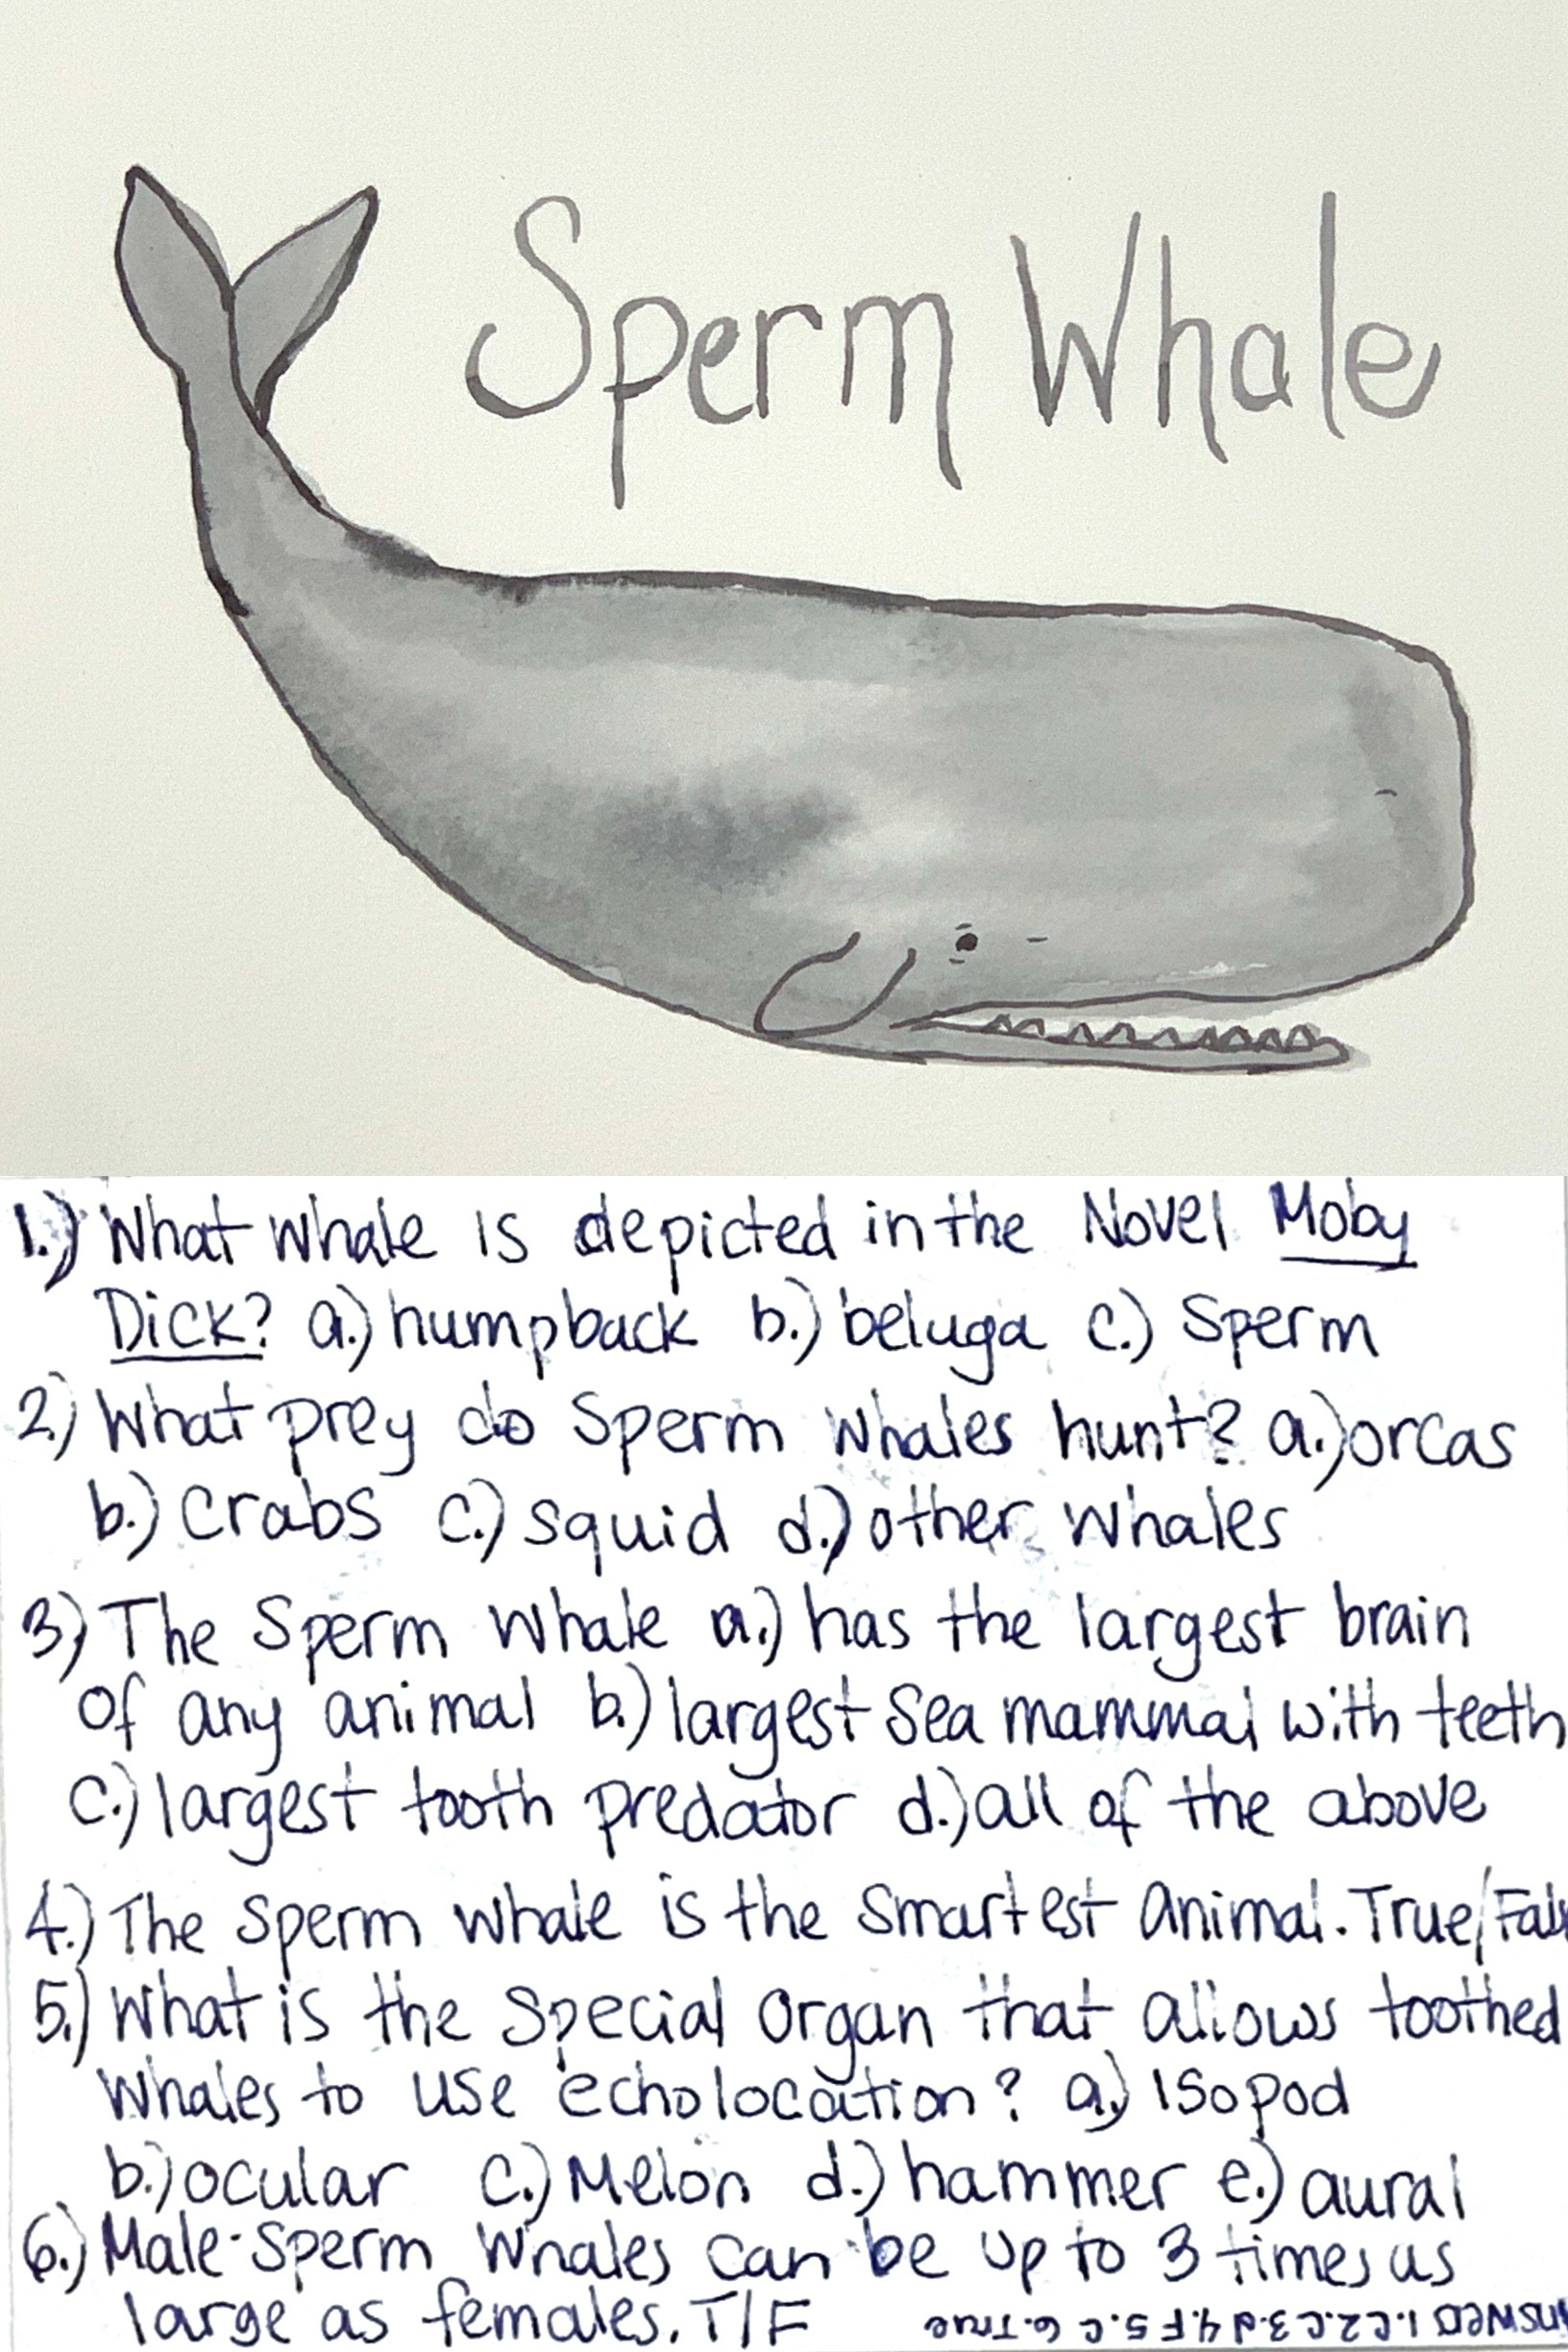 Sperm Whale
1.) What whale is depicted in the Novel Moby
Dick? a.) humpback b.) beluga c.) Sperm
2.) What prey do Sperm Whales hunt? a.) orcas
b.) Crabs c.) squid d.) other whales
3.) The Sperm Whale a.) has the largest brain
of any animal b.) largest Sea mammal with teeth
c.) largest tooth predator d.) all of the above
4.) The Sperm whale is the Smartest Animal. True/Fals
5.) What is the Special Organ that allows toothed
Whales to use echolocation? a.) Isopod
b.) ocular c.) Melon d.) hammer e.) aural
6.) Male Sperm Whales can be up to 3 times as
large as females. T/F
Answers 1.C 2.C 3.d 4.F 5.C 6.True